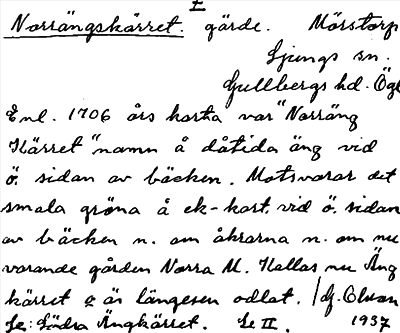 E
Norrängskärret. gärde. Mörstorp
Ljungs sn.
Gullbergs hd. Ögl
Enl. 1706 års karta var "Norräng
Kärret" namn å dåtida äng vid
ö. sidan av bäcken. Motsvarar det
smala gröna å ek-kart. vid ö. sidan
av bäcken n. om åkrarna n. om nu
varande gården Norra M. Kallas nu Äng
kärret o är längesen odlat. / G. Olsson
Se: Södra Ängkärret. Se II. 1937